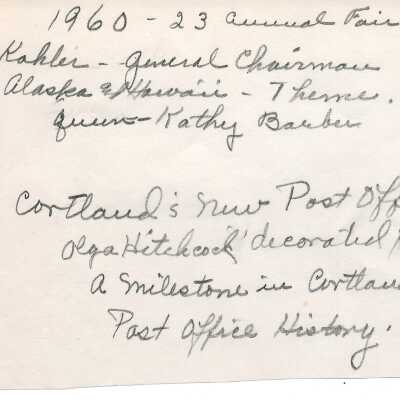 1960 - 23 annual Fair
Kohler - General Chairman
Alaska & Hawaii - Theme.
Queen - Kathy Barber
Cortland's New Post Off
Olga Hitchcock decorated
A milestone in Cortlan
Post Office History.